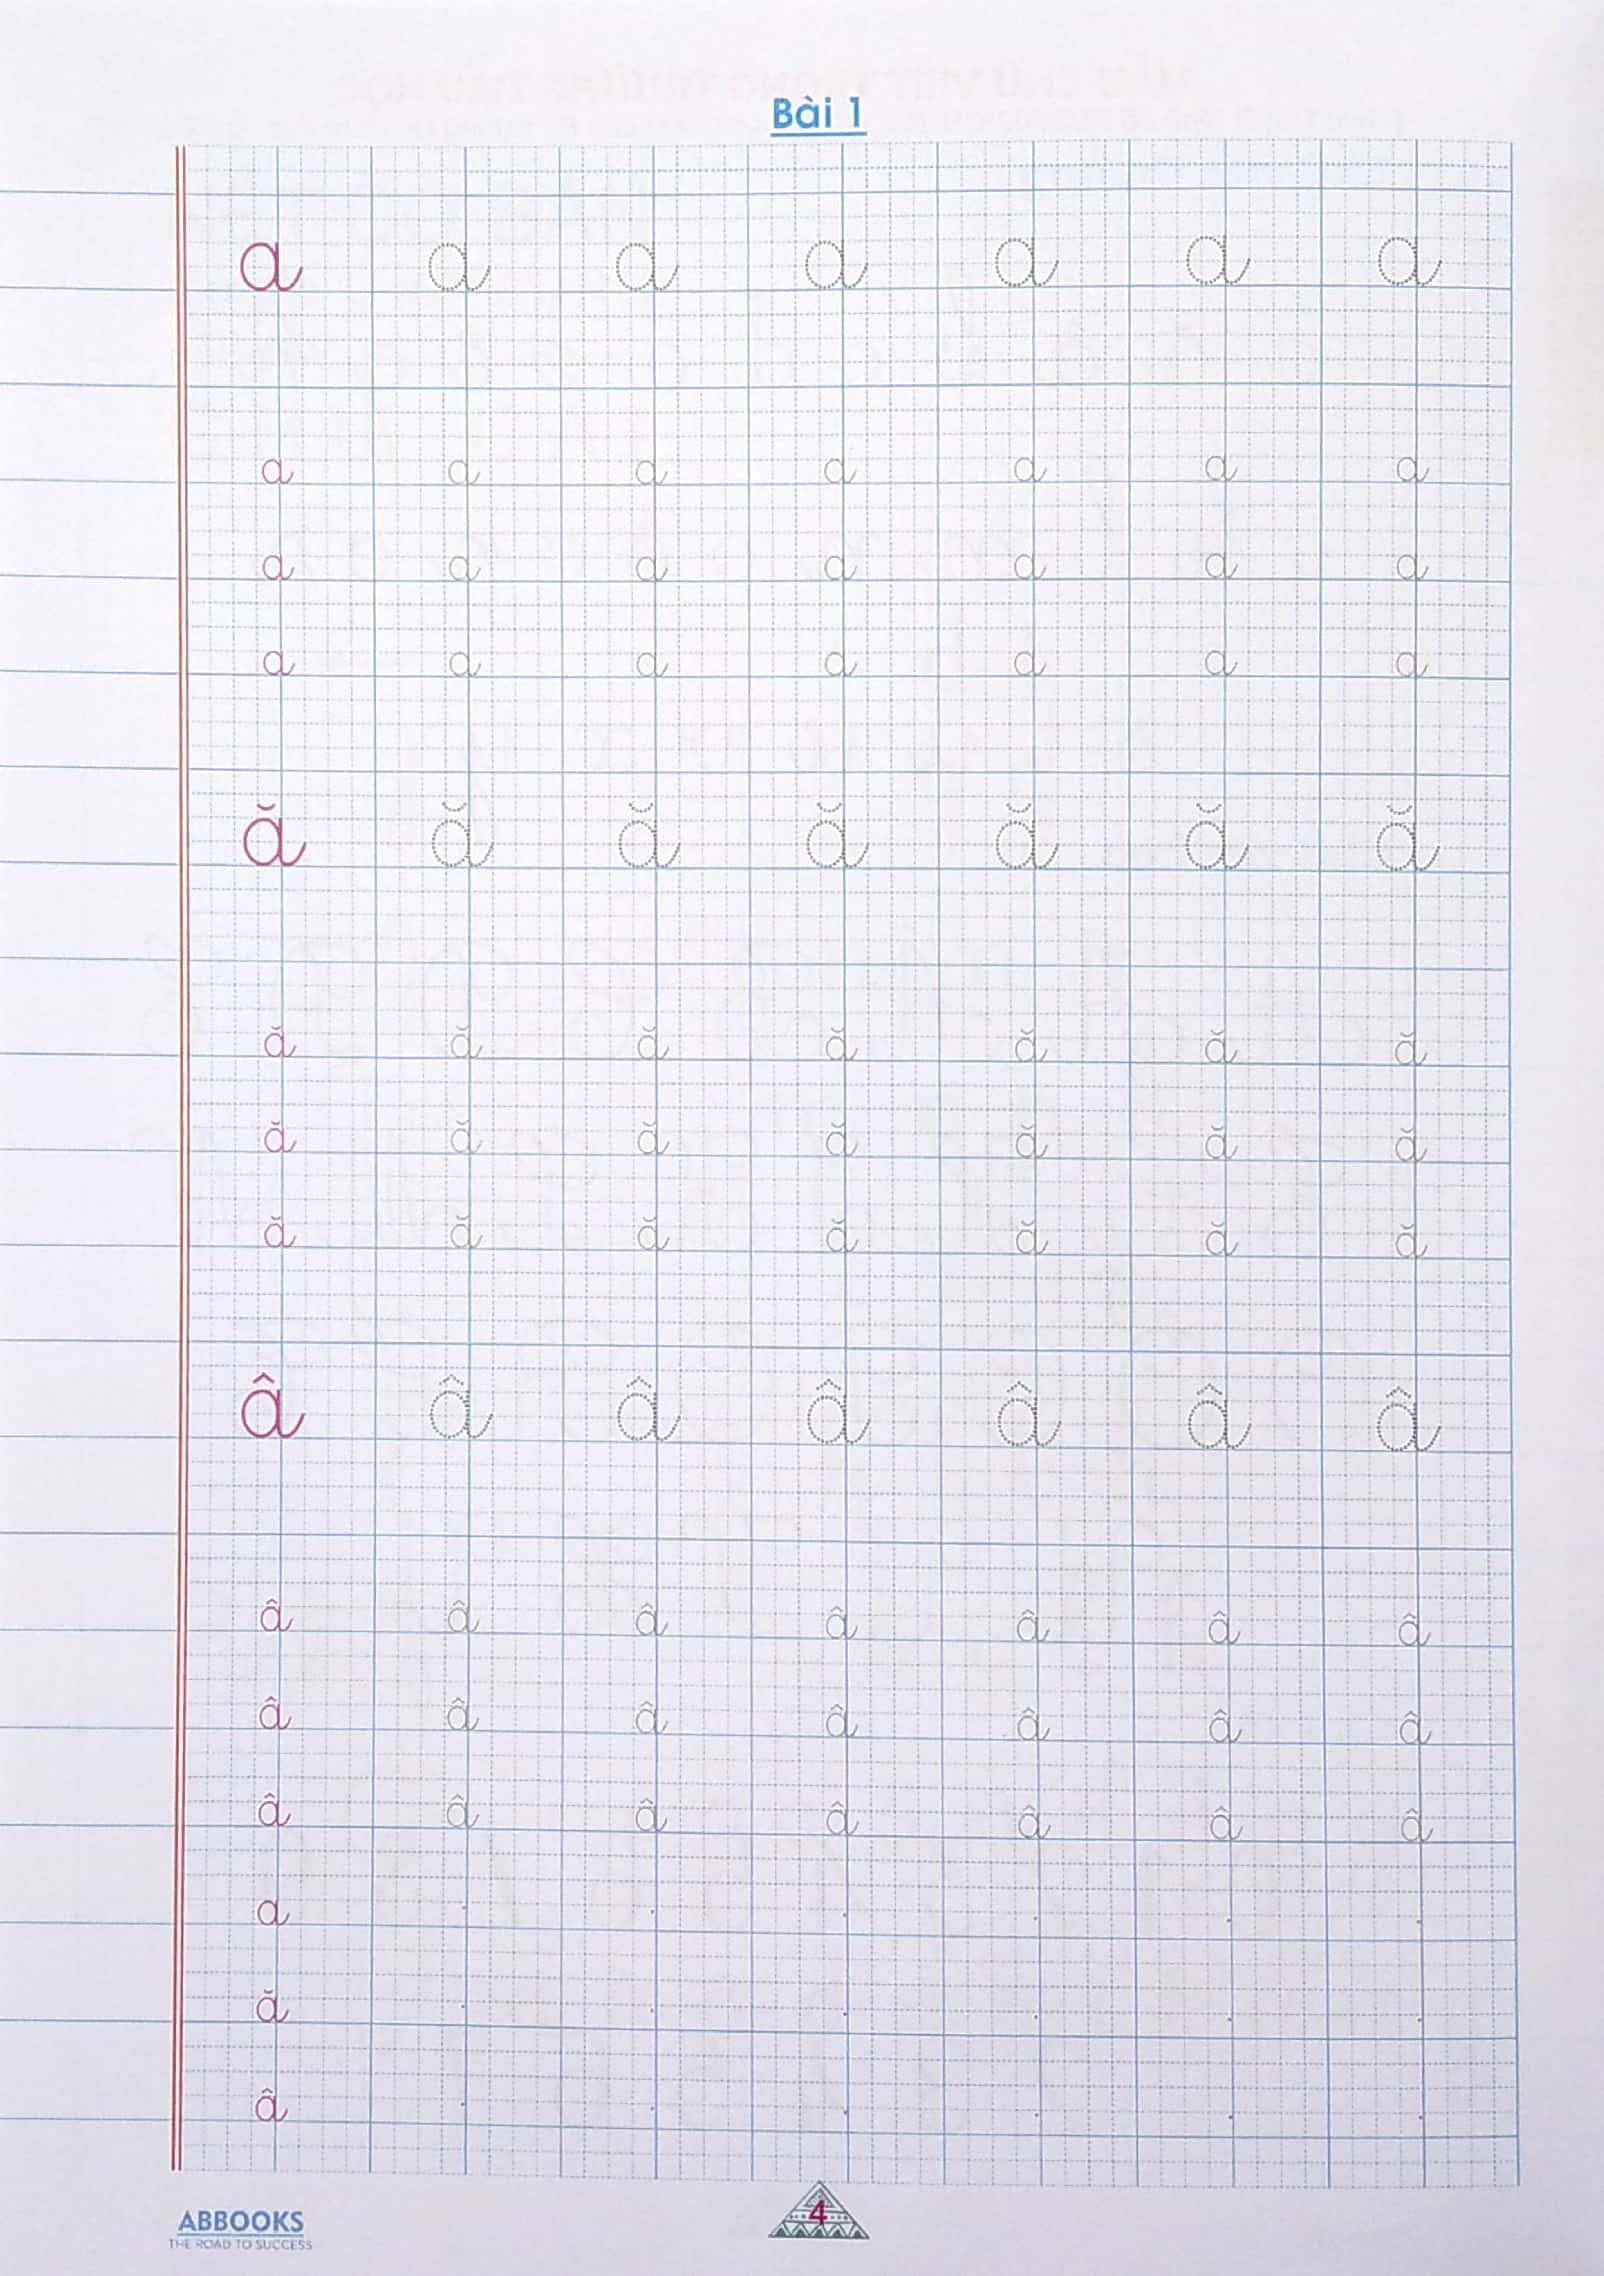 Bài 1
a a a a a a a
a a a a a a a
a a a a a a a
a a a a a a a
ă ă ă ă ă ă ă
ă ă ă ă ă ă ă
ă ă ă ă ă ă ă
ă ă ă ă ă ă ă
â â â â â â â
â â â â â â â
â â â â â â â
â â â â â â â
a
ă
â
4
ABBOOKS
THE ROAD TO SUCCESS